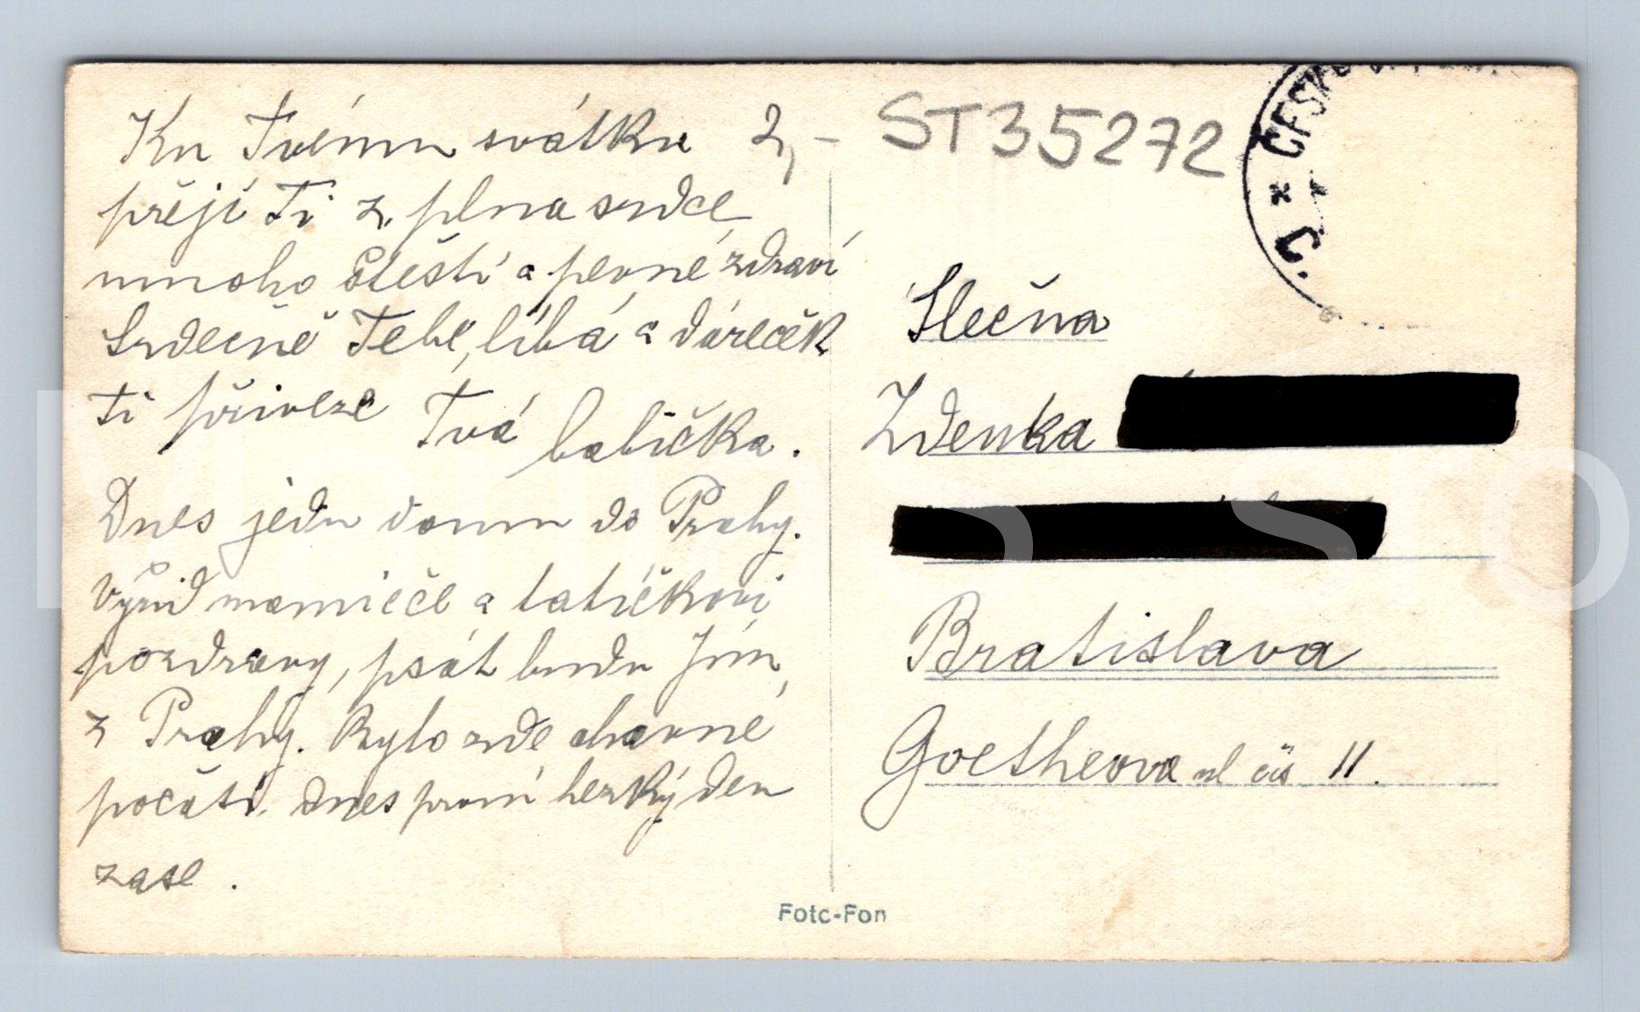 Ku Tvému svátku
přeji Ti z plna srdce
mnoho štěstí a pevné zdraví
Srdečně Tebe líbá a dáreček
Ti přiveze Tvá babička.
Dnes jedu domu do Prahy.
Vyřiď mamičce a tatíčkovi
pozdravy, psát budu Jim
z Prahy. Bylo zde chavné
počasí, dnes první hezký den
zase.
2,-
ST35272
Č. * ČESKO
Slečna
Zdenka
Bratislava
Goetheova ul čís 11.
Foto-Fon